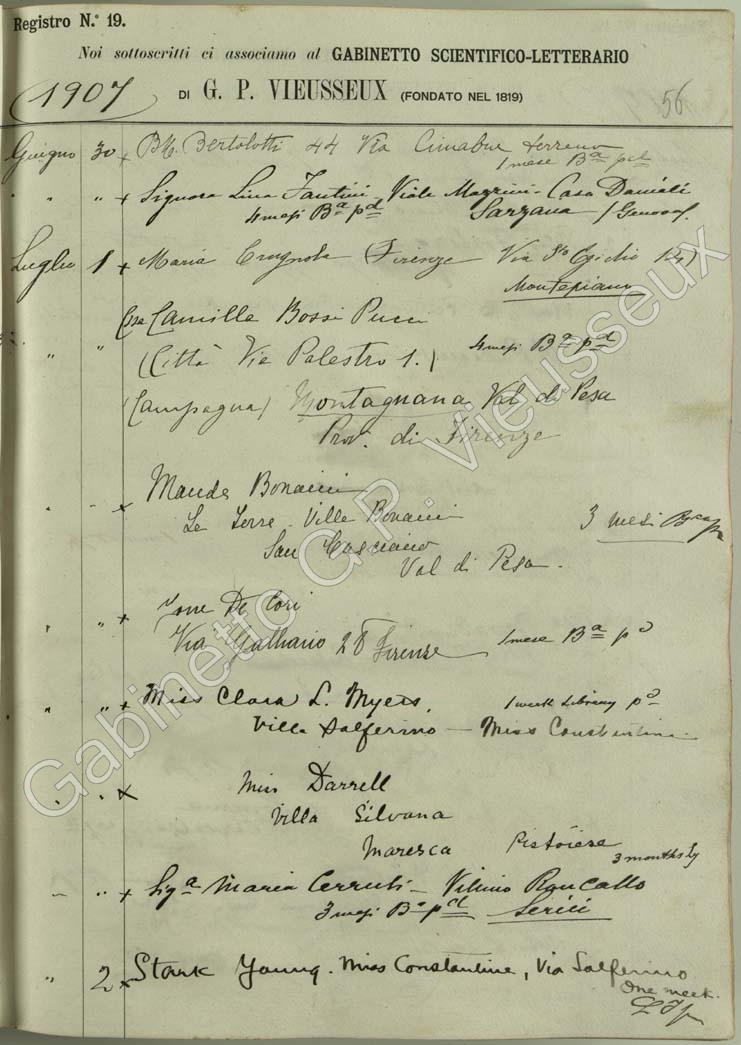 Registro N.º 19.
Noi sottoscritti ci associamo al GABINETTO SCIENTIFICO-LETTERARIO
1907 DI G. P. VIEUSSEUX (FONDATO NEL 1819) 56
Giugno 30 x Bertolotti 44 Via Cimabue terreno
1 mese Bª pd
" " x Signora Lina Fantini Viale Mazzini - Casa Daniali
4 mesi Bª pd Sarzana / Genova /
Luglio 1 x Maria Crugnola (Firenze Via Sº Egidio
Montepiano
Camilla Bossi Pucci
" " (Città Via Palestro 1.) 4 mesi Bª pd
(Campagna) Montagnana Val di Pesa
Prov. di Firenze
" " x Maude Bonacini
Le Torre. Villa Bonacini 3 mesi
San Casciano
Val di Pesa.
" " x De Cori
Via 28 Firenze 1 mese Bª pd
" " x Miss Clara L. Myers. 1 week Library pd
Villa Solferino - Miss Constantine.
" " x Miss Darrell
Villa Silvana
Maresca Pistoiese
3 months
" " x Sigª Maria Cerruti - Villino Roncallo
3 mesi Bª pd Lerici
" 2 x Stark Young. Miss Constantine, Via Solferino
One week.
Gabinetto G.P. Vieusseux